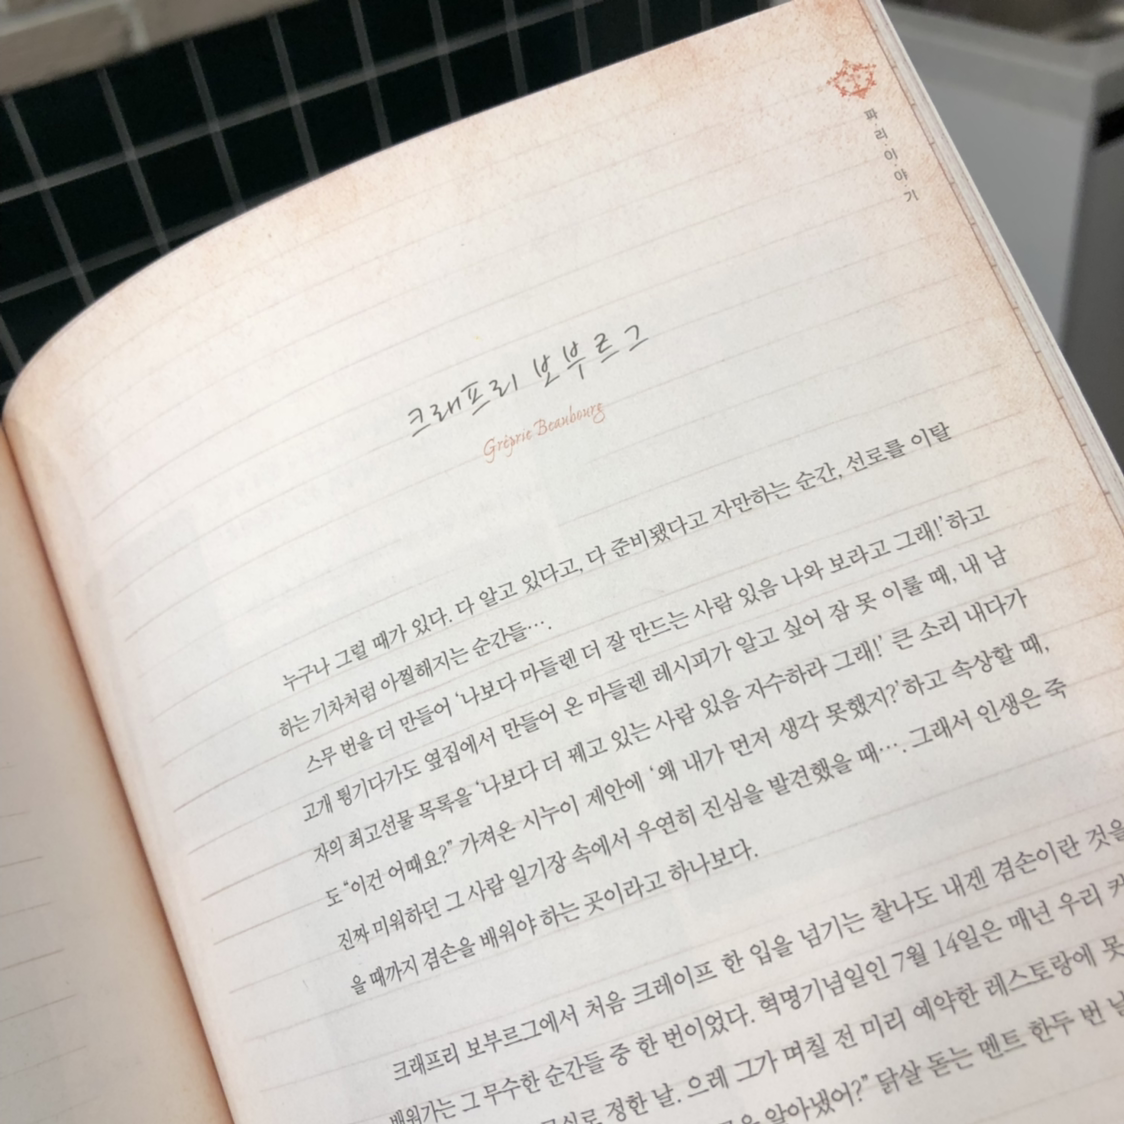 파리이야기
크래프리 보부르그
Grêprie Beaubourg
누구나 그럴 때가 있다. 다 알고 있다고, 다 준비됐다고 자만하는 순간, 선로를 이탈
하는 기차처럼 아찔해지는 순간들….
스무 번을 더 만들어 ‘나보다 마들렌 더 잘 만드는 사람 있음 나와 보라고 그래!’ 하고
고개 튕기다가도 옆집에서 만들어 온 마들렌 레시피가 알고 싶어 잠 못 이룰 때, 내 남
자의 최고선물 목록을 ‘나보다 더 꿰고 있는 사람 있음 자수하라 그래!’ 큰 소리 내다가
도 “이건 어때요?” 가져온 시누이 제안에 ‘왜 내가 먼저 생각 못했지?’ 하고 속상할 때,
진짜 미워하던 그 사람 일기장 속에서 우연히 진심을 발견했을 때…. 그래서 인생은 죽
을 때까지 겸손을 배워야 하는 곳이라고 하나보다.
크래프리 보부르그에서 처음 크레이프 한 입을 넘기는 찰나도 내겐 겸손이란 것을
배워가는 그 무수한 순간들 중 한 번이었다. 혁명기념일인 7월 14일은 매년 우리
정한 날. 으레 그가 며칠 전 미리 예약한 레스토랑에 못
알아냈어?” 닭살 돋는 멘트 한두 번